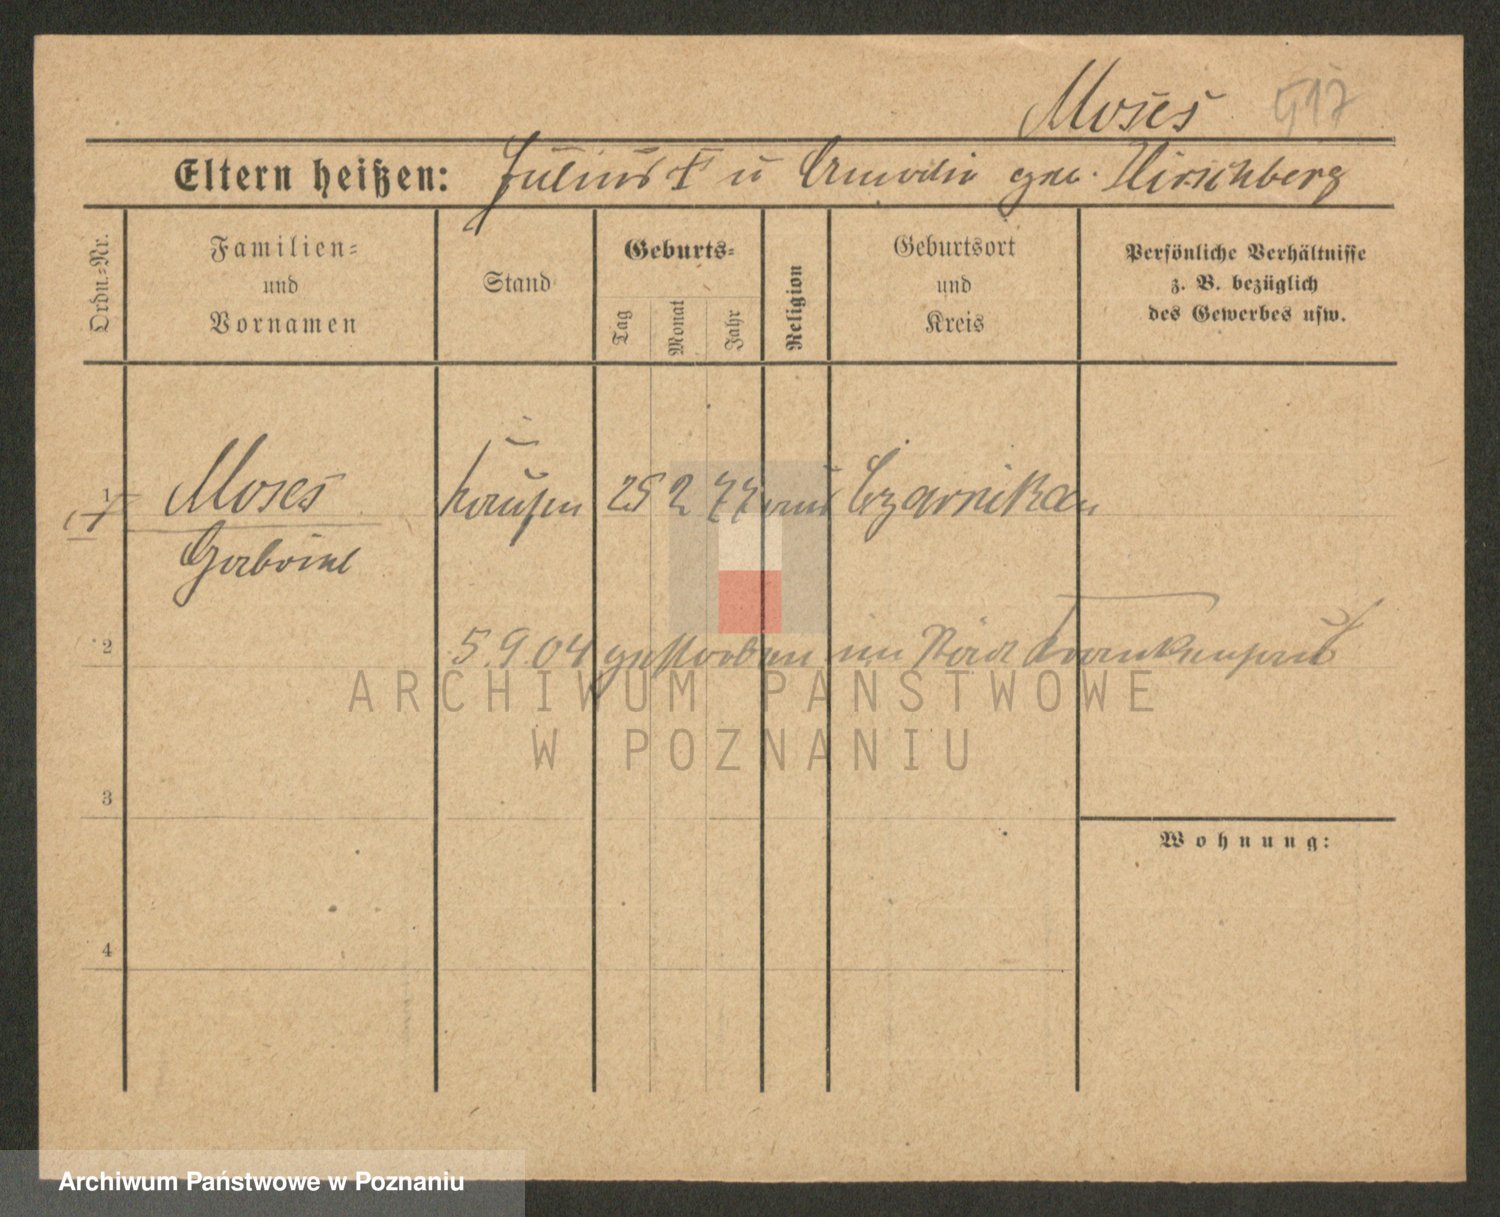 Moses 517
Eltern heißen: Julius † u geb. Hirschberg
Ordn.-Nr.
Familien-
und
Vornamen
Stand
Geburts-
Tag
Monat
Jahr
Religion
Geburtsort
und
Kreis
Persönliche Verhältnisse
z. B. bezüglich
des Gewerbes usw.
1 Moses 25 2 77 mos Czarnikau
Gabriel
2 5.9.04 gestorben im Städt Krankenhaus
ARCHIWUM PAŃSTWOWE
W POZNANIU
3
Wohnung:
4
Archiwum Państwowe w Poznaniu